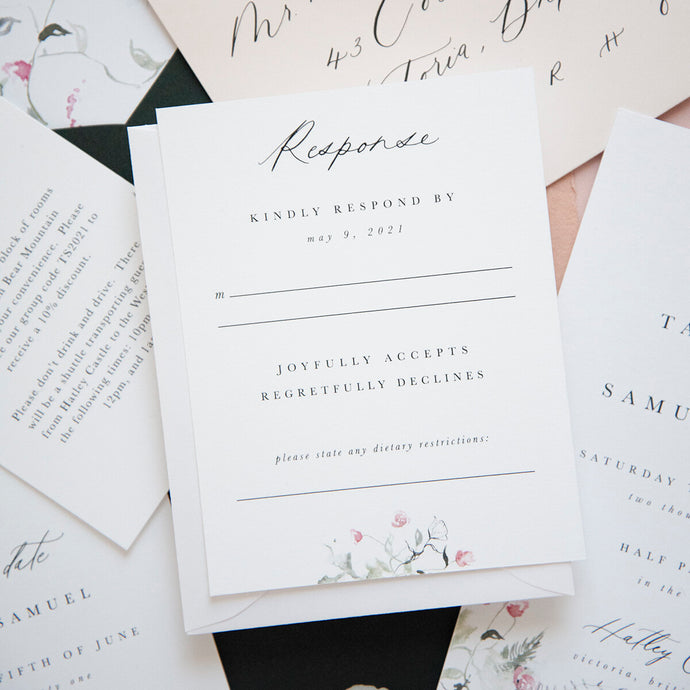 Mr.
43
R H
block of rooms
n Bear Mountain
your convenience. Please
e our group code TS2021 to
receive a 10% discount.
Please don't drink and drive. There
will be a shuttle transporting gue
from Hatley Castle to the Wes
the following times: 10pm
12pm, and 1a
Response
KINDLY RESPOND BY
may 9, 2021
m
JOYFULLY ACCEPTS
REGRETFULLY DECLINES
please state any dietary restrictions:
date
SAMUEL
FIFTH OF JUNE
one
TA
SAMU
SATURDAY
two thou
HALF PA
in the
Hatley C
victoria, brit